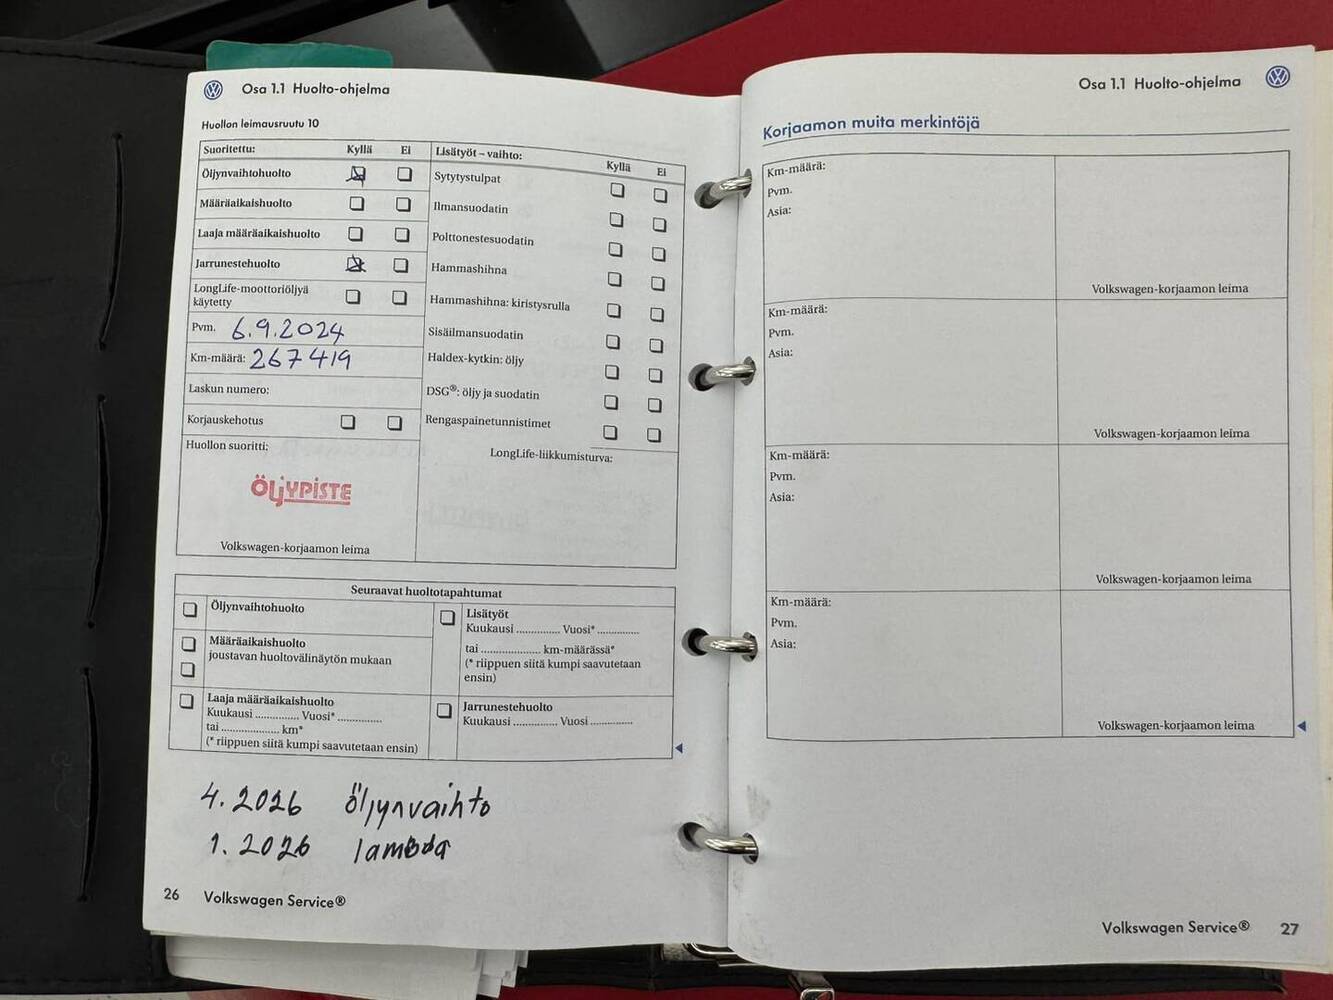 Osa 1.1 Huolto-ohjelma
Huollon leimausruutu 10
Suoritettu: Kyllä Ei
Öljynvaihtohuolto
Määräaikaishuolto
Laaja määräaikaishuolto
Jarrunestehuolto
LongLife-moottoriöljyä
käytetty
Pvm. 6.9.2024
Km-määrä: 267419
Laskun numero:
Korjauskehotus
Huollon suoritti:
ÖljYPiSTE
Volkswagen-korjaamon leima
Lisätyöt – vaihto: Kyllä Ei
Sytytystulpat
Ilmansuodatin
Polttonestesuodatin
Hammashihna
Hammashihna: kiristysrulla
Sisäilmansuodatin
Haldex-kytkin: öljy
DSG®: öljy ja suodatin
Rengaspainetunnistimet
LongLife-liikkumisturva:
Seuraavat huoltotapahtumat
Öljynvaihtohuolto
Määräaikaishuolto
joustavan huoltovälinäytön mukaan
Laaja määräaikaishuolto
Kuukausi .............. Vuosi* ..............
tai .................... km*
(* riippuen siitä kumpi saavutetaan ensin)
Lisätyöt
Kuukausi .............. Vuosi* ..............
tai .................... km-määrässä*
(* riippuen siitä kumpi saavutetaan
ensin)
Jarrunestehuolto
Kuukausi .............. Vuosi ..............
4.2026 öljynvaihto
1.2026 lambda
26 Volkswagen Service®
Osa 1.1 Huolto-ohjelma
Korjaamon muita merkintöjä
Km-määrä:
Pvm.
Asia:
Volkswagen-korjaamon leima
Km-määrä:
Pvm.
Asia:
Volkswagen-korjaamon leima
Km-määrä:
Pvm.
Asia:
Volkswagen-korjaamon leima
Km-määrä:
Pvm.
Asia:
Volkswagen-korjaamon leima
Volkswagen Service® 27